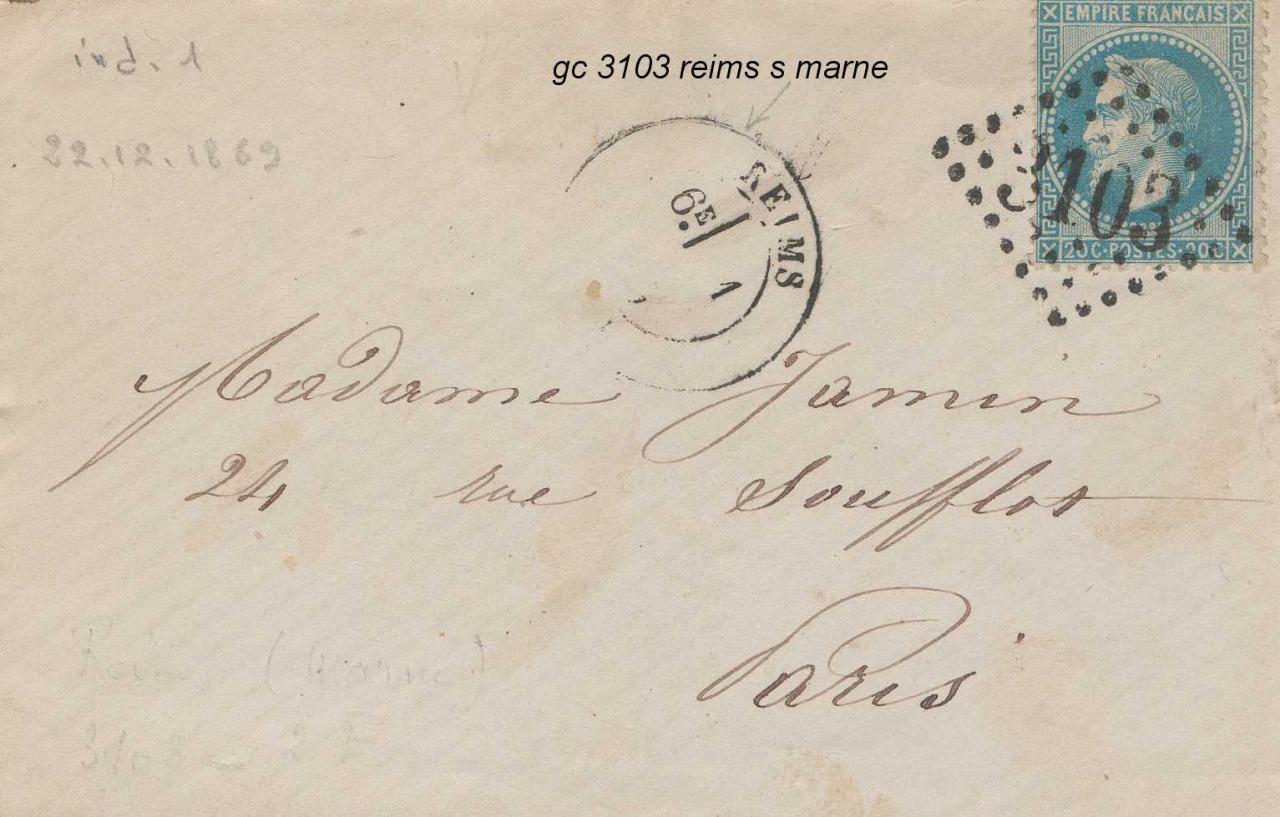 EMPIRE FRANÇAIS
ind. 1
gc 3103 reims s marne
22.12.1869
REIMS
6E
1
3103
20C·POSTES·20C
Madame Jamin
24 rue Soufflot
Paris
Reims (Marne)
3103